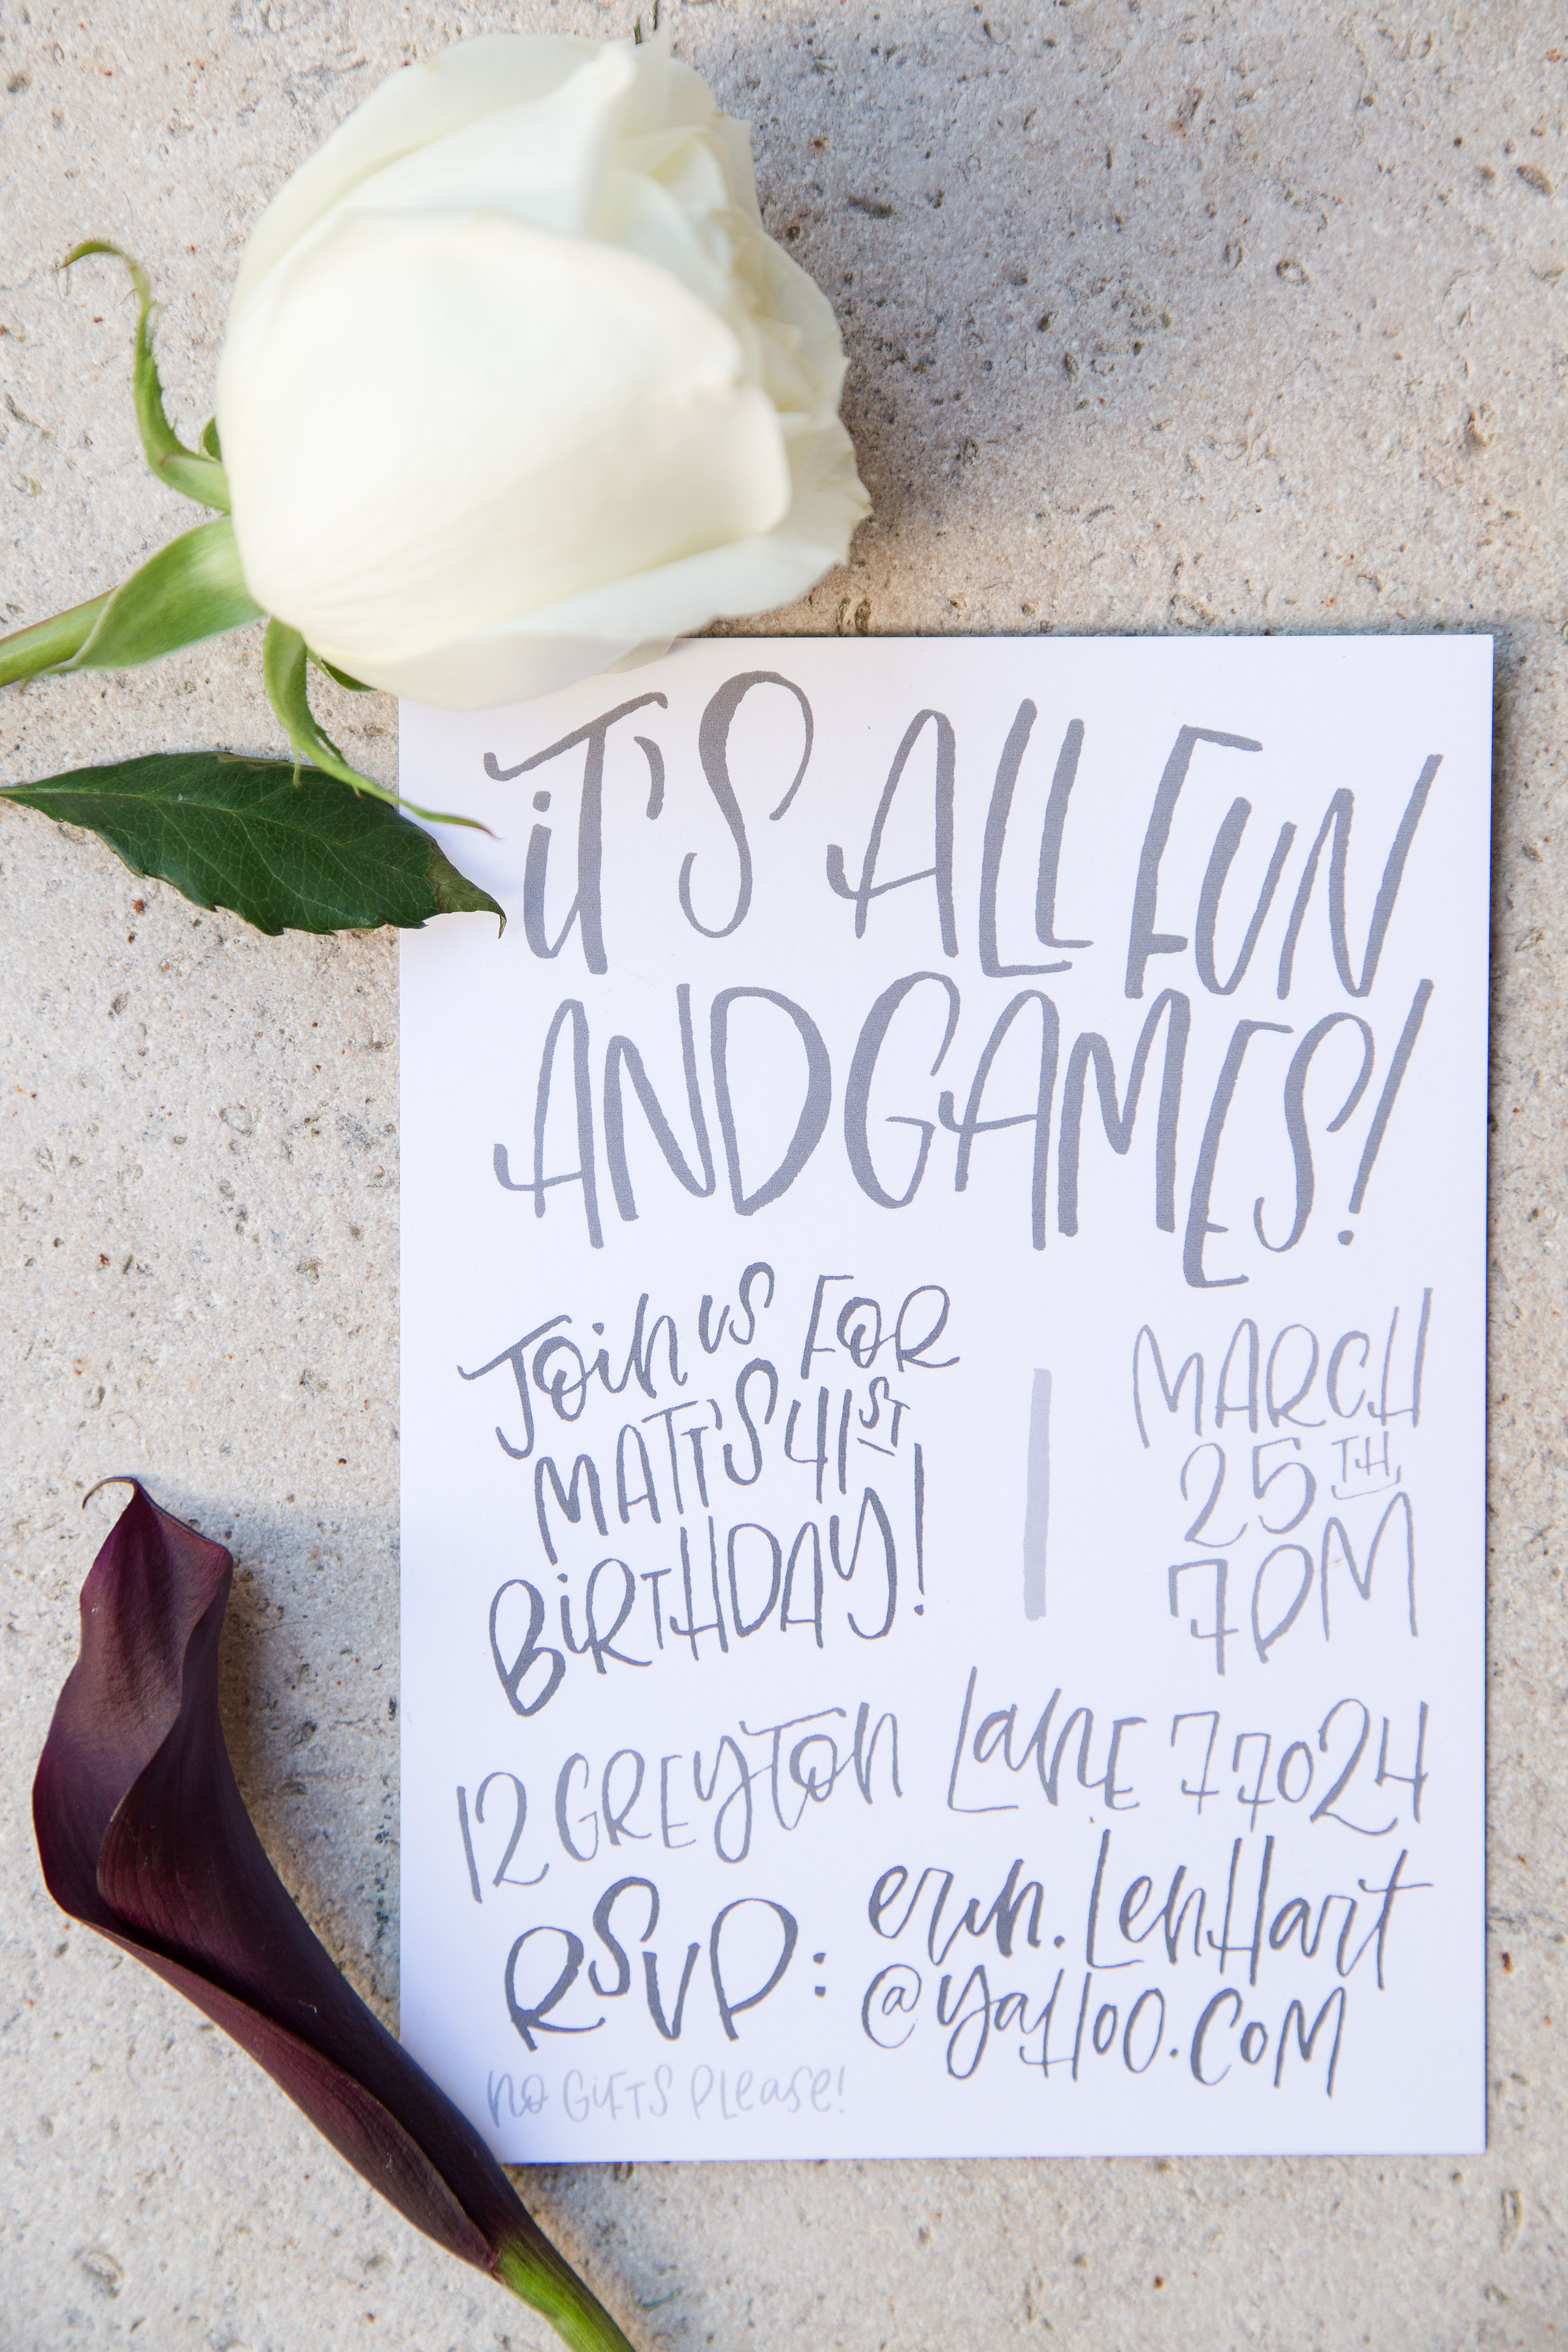 iT'S ALL FUN
AND GAMES!
Join us FOR
MATT'S 41ST
BiRTHDAY!
MARCH
25TH,
7PM
12 GREyTon LanE 77024
RSVP: erin.LenHart
@yaHoo.CoM
no GiFTS PLease!